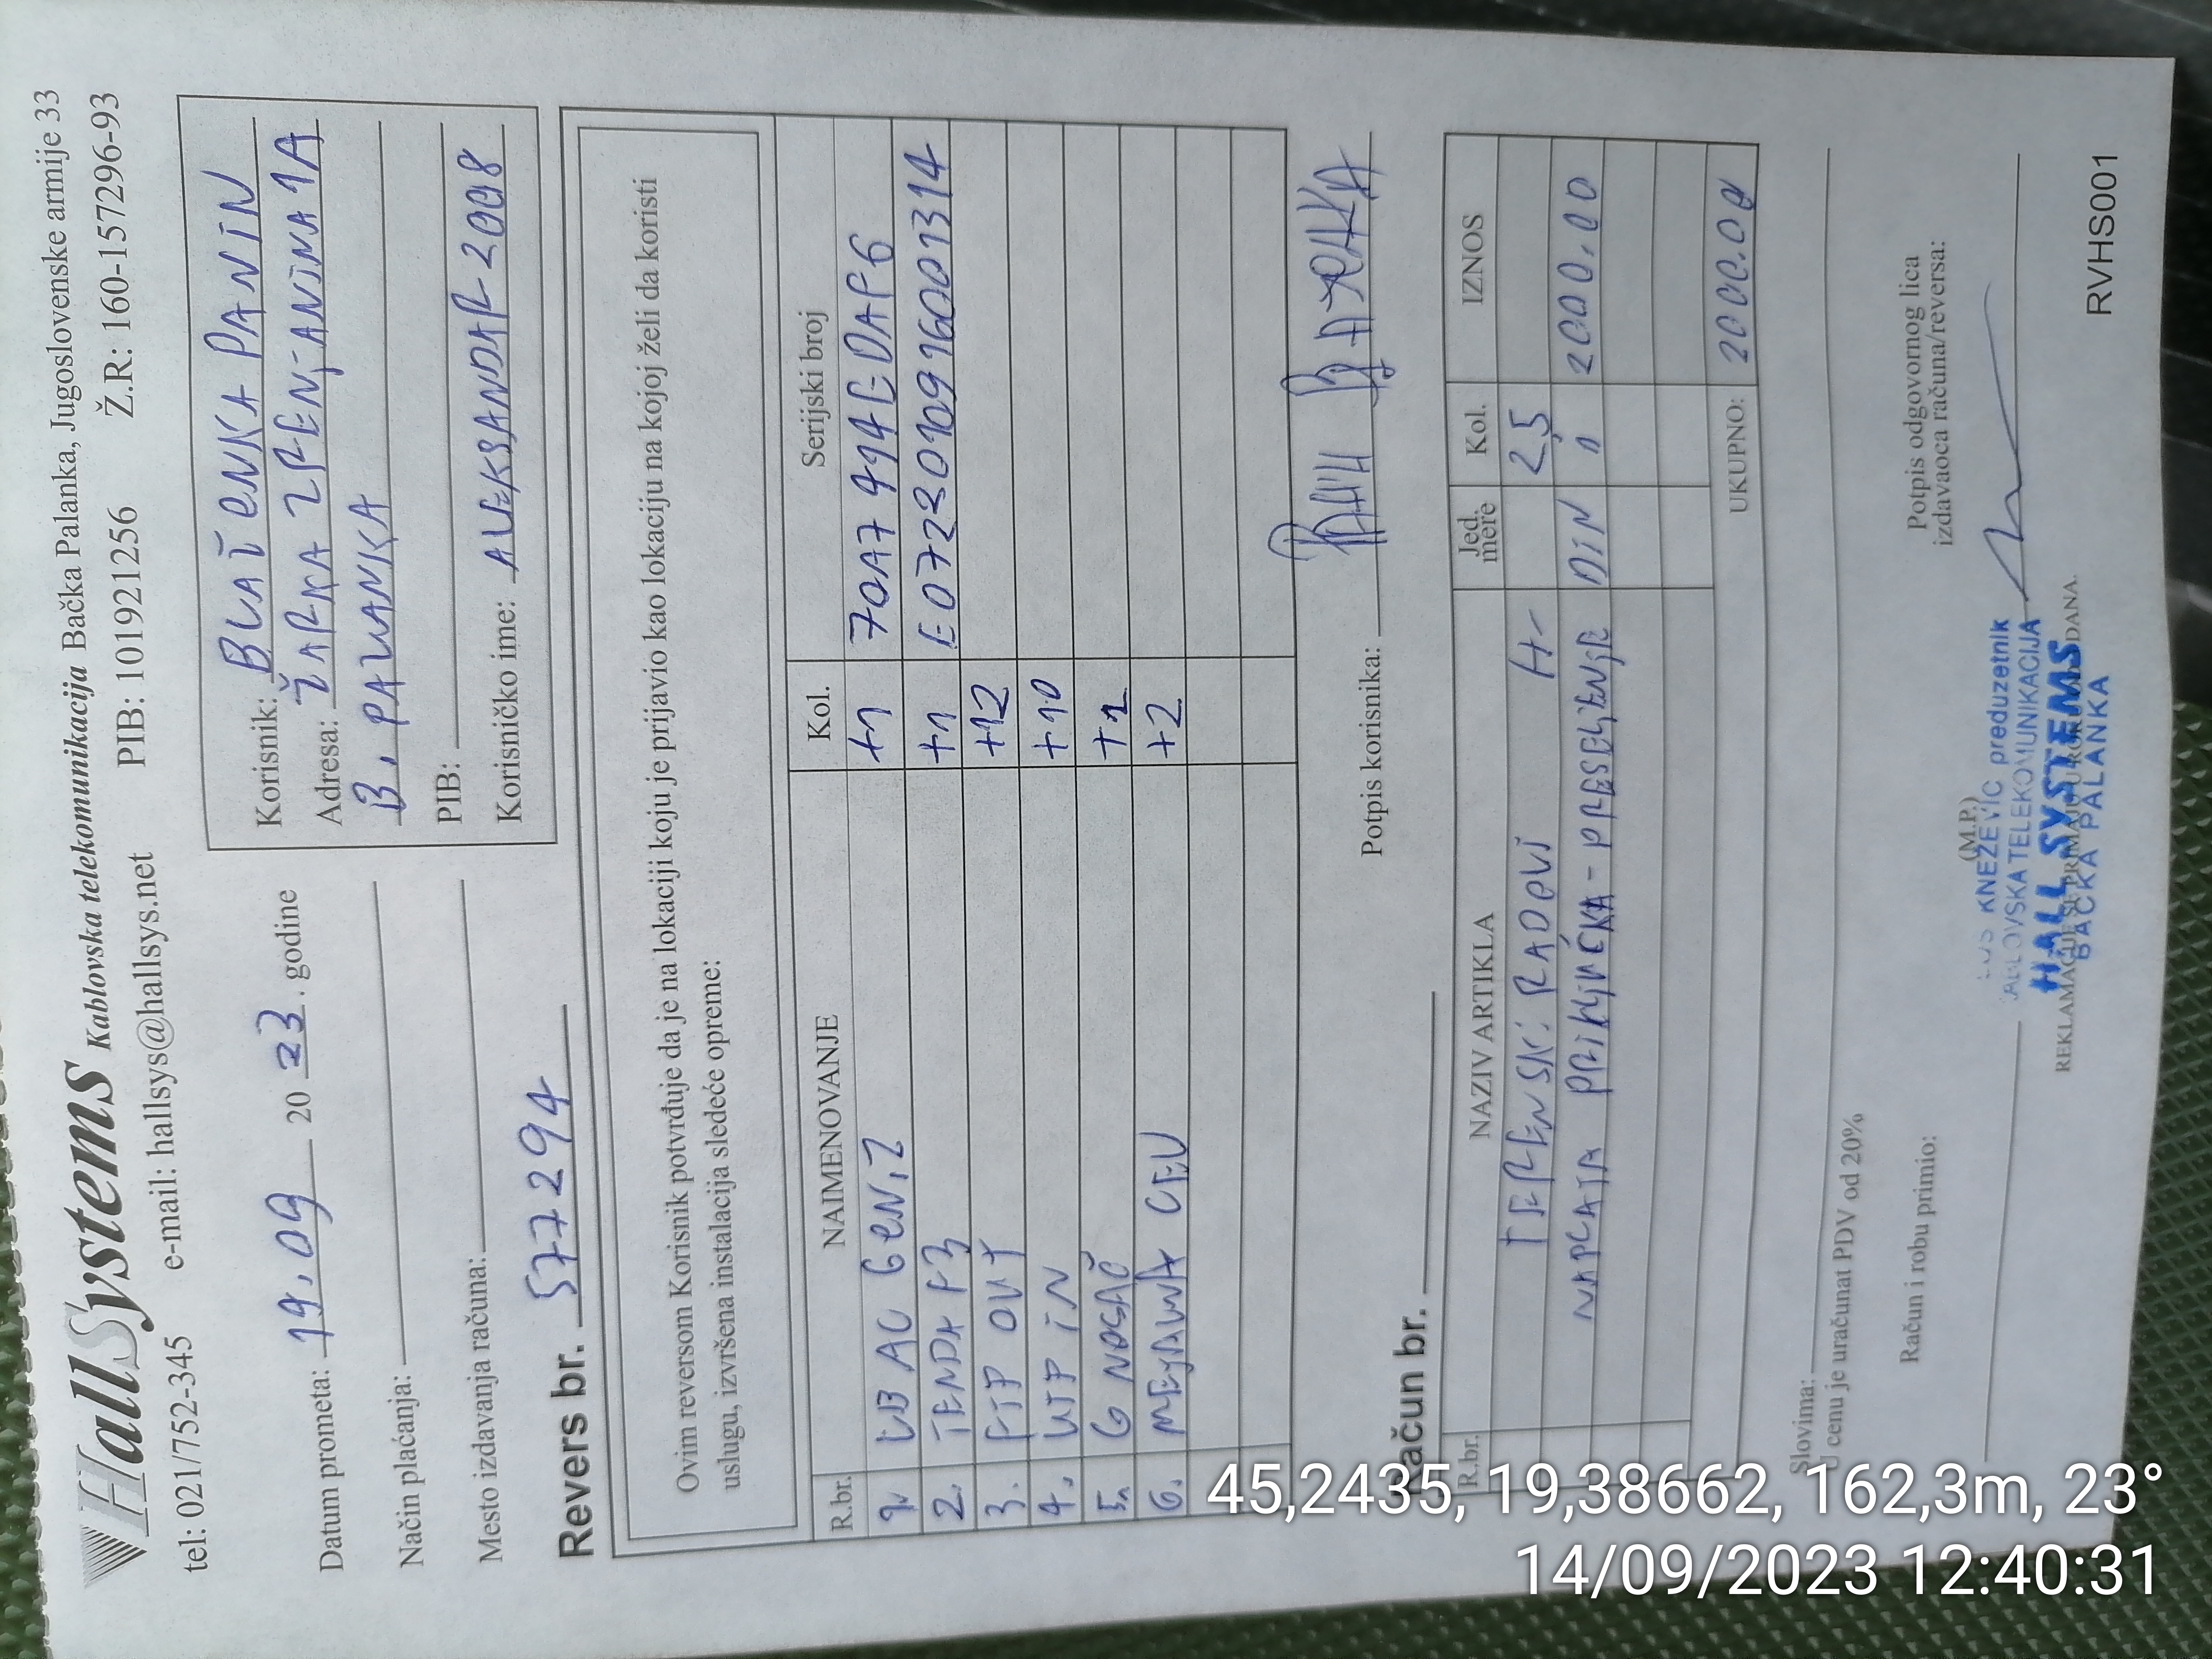 HallSystems Kablovska telekomunikacija Bačka Palanka, Jugoslovenske armije 33
tel: 021/752-345 e-mail: hallsys@hallsys.net PIB: 101921256 Ž.R: 160-157296-93
Datum prometa: 14.09 20 23. godine
Način plaćanja:
Mesto izdavanja računa:
Korisnik: BLAŽENKA PANIN
Adresa: ŽARKA ZRENJANINA 1A
B. PALANKA
PIB:
Korisničko ime: ALEKSANDAR-2008
Revers br. 577294
Ovim reversom Korisnik potvrđuje da je na lokaciji koju je prijavio kao lokaciju na kojoj želi da koristi
uslugu, izvršena instalacija sledeće opreme:
R.br. NAIMENOVANJE Kol. Serijski broj
1. LB AC GEN2 +1
2. TENDA F3 +1 E0722010916001314
3. FTP OUT +12
4. UTP IN +10
5. G NOSAČ +1
6. MEJAUNA CEV +2
Potpis korisnika:
Račun br.
R.br. NAZIV ARTIKLA Jed. mere Kol. IZNOS
TERENSKI RADOVI H- 25
NAPLATA PRIKLJUČKA - PRESELJENJE DIN 11 2000.00
UKUPNO: 2000.00
Slovima:
U cenu je uračunat PDV od 20%
Račun i robu primio:
(M.P.)
Potpis odgovornog lica
izdavaoca računa/reversa:
KNEŽEVIĆ preduzetnik
KABLOVSKA TELEKOMUNIKACIJA
HALL SYSTEMS
BAČKA PALANKA
RVHS001
45,2435, 19,38662, 162,3m, 23°
14/09/2023 12:40:31